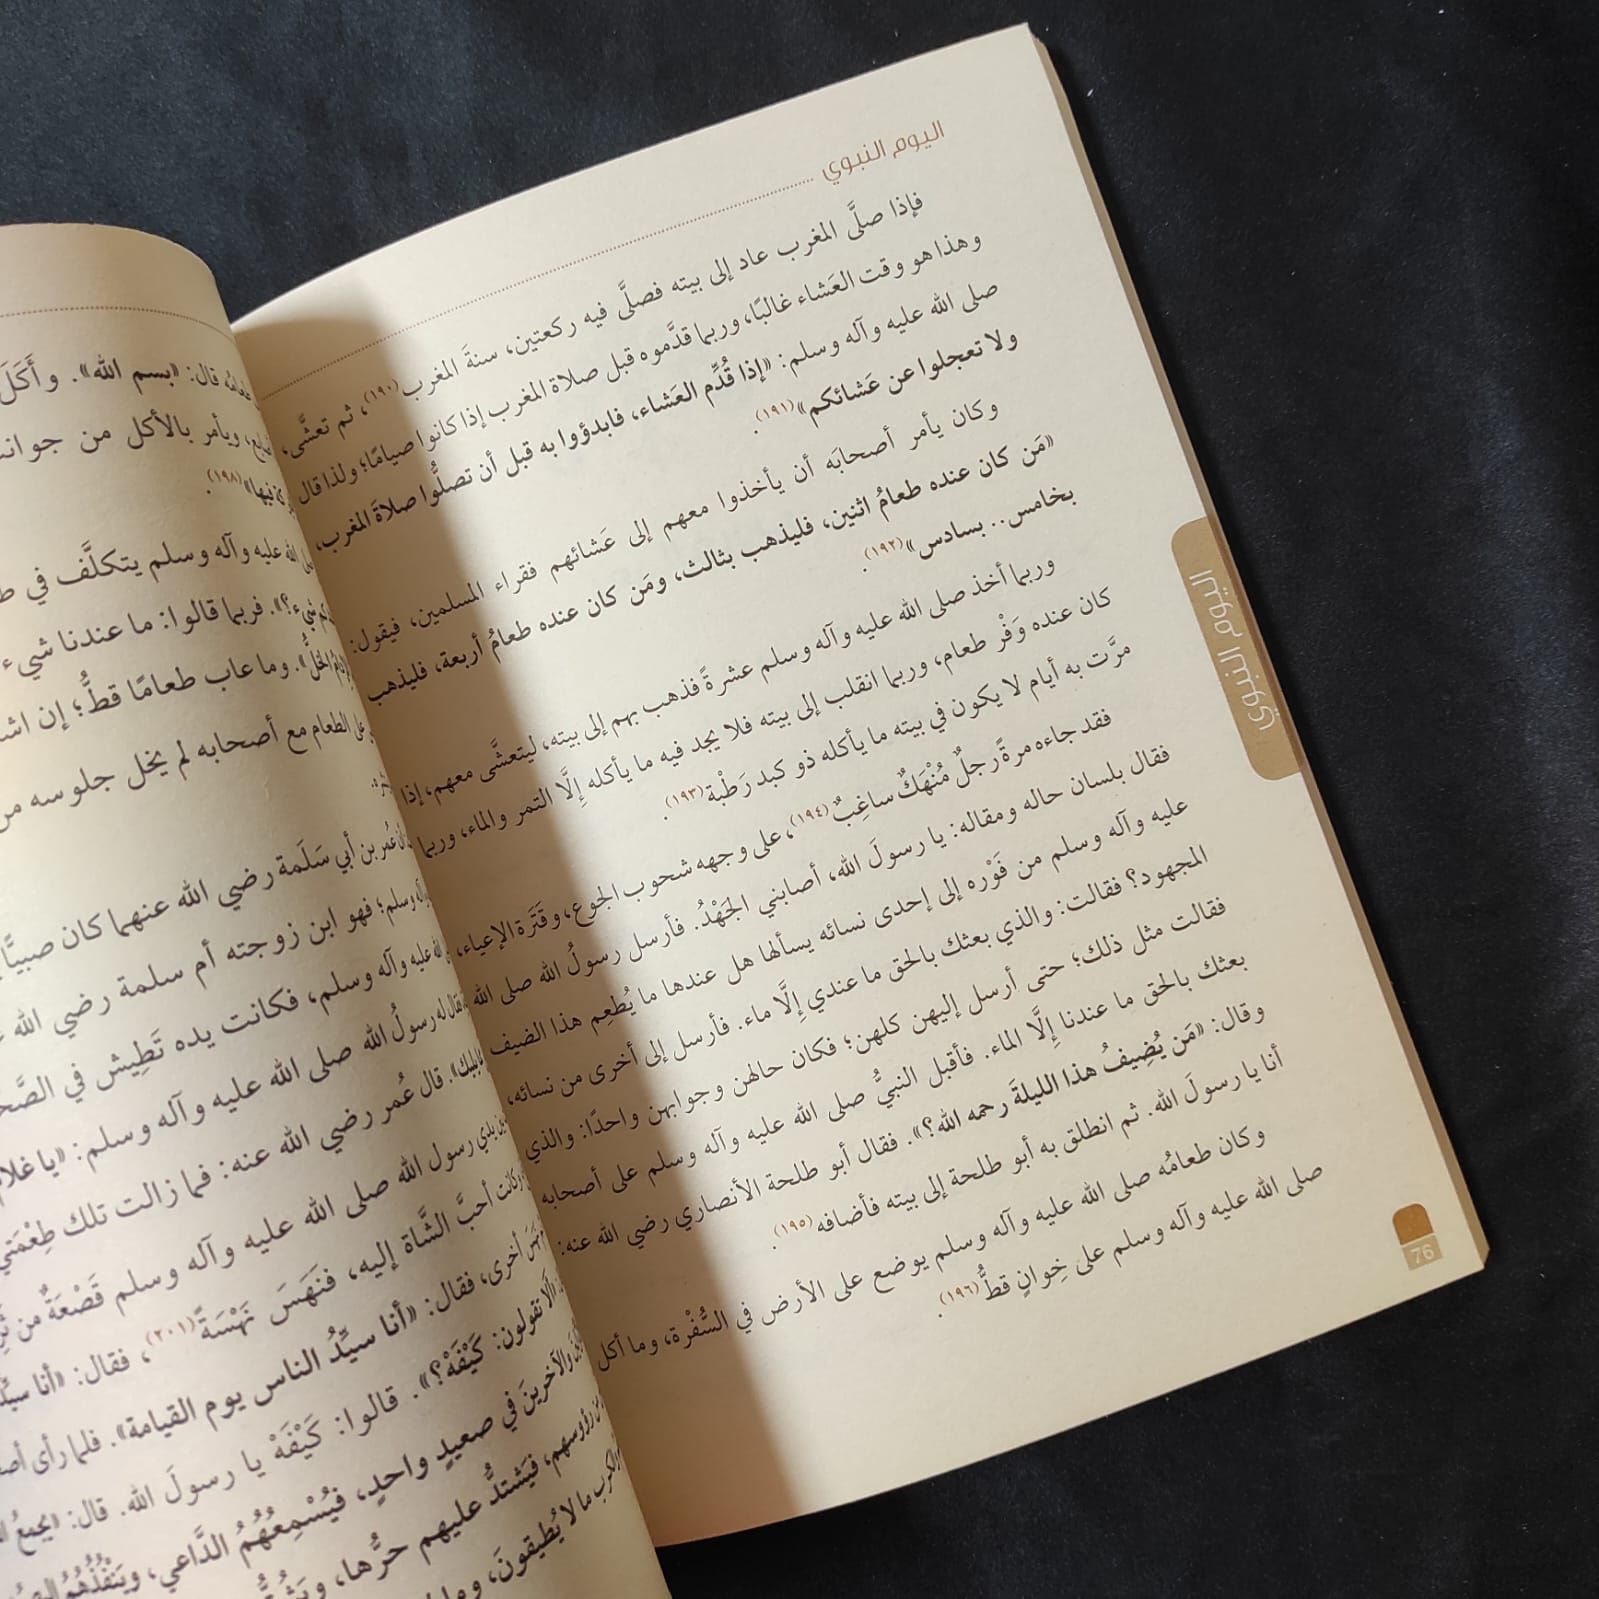 اليوم النبوي
فإذا صلَّى المغرب عاد إلى بيته فصلَّى فيه ركعتين، سنةَ المغرب(١٩٠)، ثم تعشَّى،
وهذا هو وقت العَشاء غالبًا، وربما قدَّموه قبل صلاة المغرب إذا كانوا صيامًا؛ ولذا قال
صلى الله عليه وآله وسلم: «إذا قُدِّم العَشاء، فابدؤوا به قبل أن تصلُّوا صلاةَ المغرب،
ولا تعجلوا عن عَشائكم»(١٩١).
وكان يأمر أصحابَه أن يأخذوا معهم إلى عَشائهم فقراء المسلمين، فيقول:
«مَن كان عنده طعامُ اثنين، فليذهب بثالث، ومَن كان عنده طعامُ أربعة، فليذهب
بخامس.. بسادس»(١٩٢).
وربما أخذ صلى الله عليه وآله وسلم عشرةً فذهب بهم إلى بيته، ليتعشَّى معهم، إذا
كان عنده وَفْر طعام، وربما انقلب إلى بيته فلا يجد فيه ما يأكله إلَّا التمر والماء، وربما
مرَّت به أيام لا يكون في بيته ما يأكله ذو كبد رَطْبة(١٩٣).
فقد جاءه مرةً رجلٌ مُنْهَكٌ ساغِبٌ(١٩٤)، على وجهه شحوب الجوع، وقَتَرَة الإعياء،
فقال بلسان حاله ومقاله: يا رسولَ الله، أصابني الجَهْدُ. فأرسل رسولُ الله صلى الله
عليه وآله وسلم من فَوْره إلى إحدى نسائه يسألها هل عندها ما يُطعِم هذا الضيف
المجهود؟ فقالت: والذي بعثك بالحق ما عندي إلَّا ماء. فأرسل إلى أخرى من نسائه،
فقالت مثل ذلك؛ حتى أرسل إليهن كلهن؛ فكان حالهن وجوابهن واحدًا: والذي
بعثك بالحق ما عندنا إلَّا الماء. فأقبل النبيُّ صلى الله عليه وآله وسلم على أصحابه
وقال: «مَن يُضِيفُ هذا الليلةَ رحمه الله؟». فقال أبو طلحة الأنصاري رضي الله عنه:
أنا يا رسولَ الله. ثم انطلق به أبو طلحة إلى بيته فأضافه(١٩٥).
وكان طعامُه صلى الله عليه وآله وسلم يوضع على الأرض في السُّفْرة، وما أكل
صلى الله عليه وآله وسلم على خِوانٍ قطُّ(١٩٦).
اليوم النبوي
76
قال: «بسم الله». وأَكَلَ
ويأمر بالأكل من جوانب
(١٩٨).
الله عليه وآله وسلم يتكلَّف في
شيء؟». فربما قالوا: ما عندنا شيء
الخلُّ». وما عاب طعامًا قطُّ؛ إن
على الطعام مع أصحابه لم يخل جلوسه من
عُمر بن أبي سَلَمة رضي الله عنهما كان صبيًّا
وسلم؛ فهو ابن زوجته أم سلمة رضي الله
الله عليه وآله وسلم، فكانت يده تَطِيش في
فقال له رسولُ الله صلى الله عليه وآله وسلم: «يا غلام
يليك». قال عُمر رضي الله عنه: فما زالت تلك طِعْمَتي
يدي رسول الله صلى الله عليه وآله وسلم قَصْعَةٌ من
وكانت أحبَّ الشَّاة إليه، فنَهَسَ نَهْسَةً(٢٠١)، فقال: «أنا سيِّدُ
أخرى، فقال: «أنا سيِّدُ الناس يوم القيامة». فلما رأى
«ألا تقولون: كَيْفَهْ؟». قالوا: كَيْفَهْ يا رسولَ الله. قال: «يجمعُ
والآخرينَ في صعيدٍ واحدٍ، فيُسْمِعُهُمُ الدَّاعي، ويَنْفُذُهُمُ
رؤوسهم، فيَشتدُّ عليهم حرُّها،
ما لا يُطيقونَ،